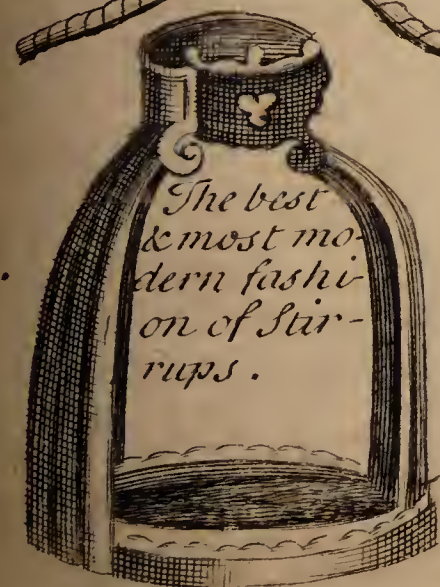 The best
& most mo-
dern fashi-
on of Stir-
rups.